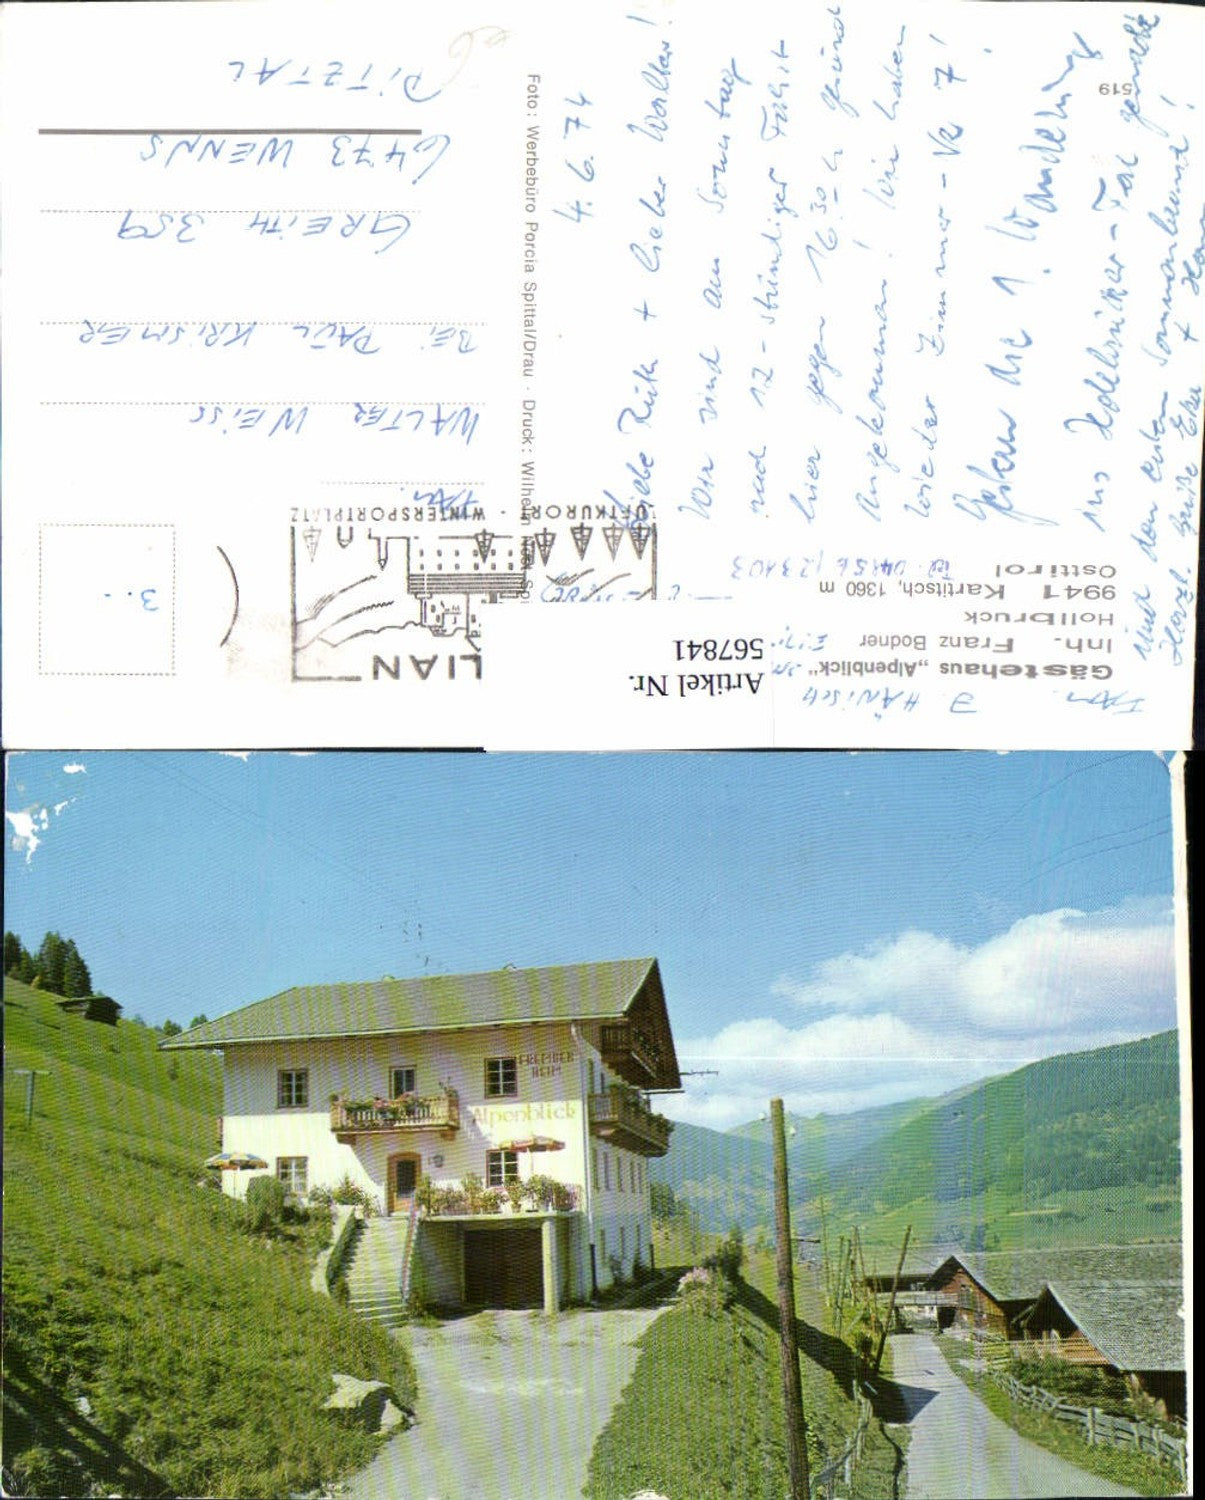 Gästehaus „Alpenblick"
Inh. Franz Bodner
Hollbruck
9941 Kartitsch, 1360 m
Osttirol
Tel.
519
Artikel Nr.
567841
FAM. J. HÄNISCH
4.6.74
Liebe Ruth + lieber Walter!
Wir sind am Sonntag
nach 12-stündiger Fahrt
hier gegen 16.30 h gesund
angekommen! Wir haben
wieder Zimmer-Nr 7!
Gestern die 1. Wanderung
ins
und den ersten Sonnenbrand!
Herzl. Grüße
Foto: Werbebüro Porcia Spittal/Drau · Druck: Wilhelm
LIAN
LUFTKURORT - WINTERSPORTPLATZ
3.-
FAM.
WALTER WEISS
BEI PAUL KRISMER
GREITH 359
6473 WENNS
PITZTAL
FREMDEN
HEIM
Alpenblick